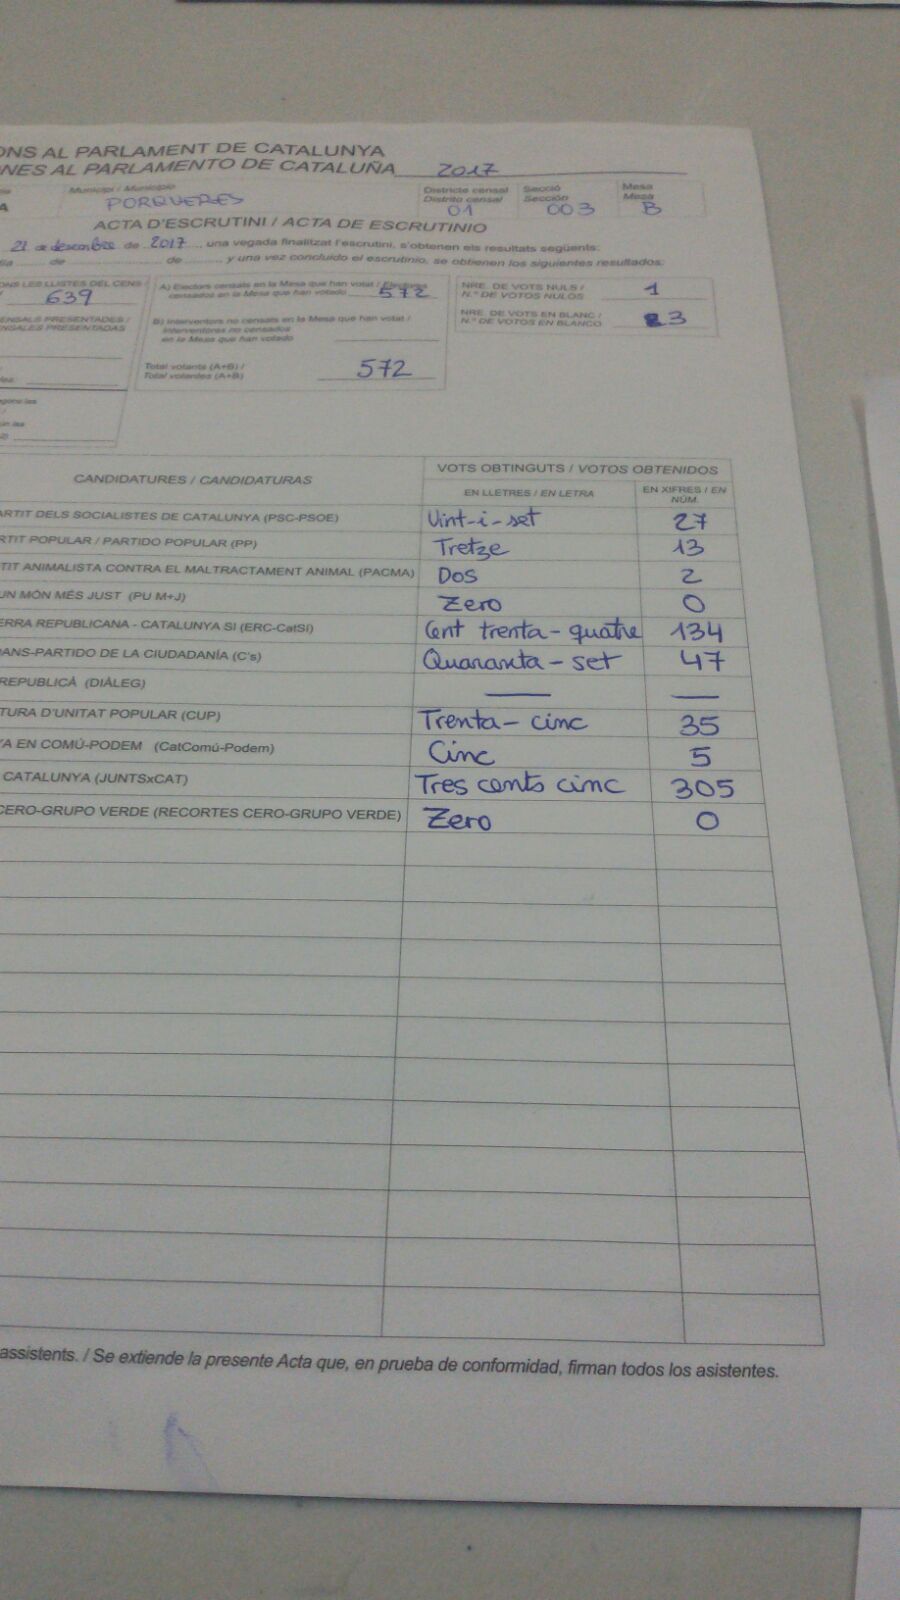 ONS AL PARLAMENT DE CATALUNYA
NES AL PARLAMENTO DE CATALUÑA 2017
Municipi / Municipio
PORQUERES
Districte censal
Distrito censal
01
Secció
Sección
003
Mesa
Mesa
B
A
ACTA D'ESCRUTINI / ACTA DE ESCRUTINIO
21 de desembre de 2017, una vegada finalitzat l'escrutini, s'obtenen els resultats següents:
de de y una vez concluido el escrutinio, se obtienen los siguientes resultados:
ONS LES LLISTES DEL CENS /
639
ENSALS PRESENTADES /
NSALES PRESENTADAS
A) Electors censats en la Mesa que han votat / Electores
censados en la Mesa que han votado 572
B) Interventors no censats en la Mesa que han votat /
Interventores no censados
en la Mesa que han votado
Total votants (A+B) /
Total votantes (A+B) 572
NRE. DE VOTS NULS /
N.º DE VOTOS NULOS 1
NRE. DE VOTS EN BLANC /
N.º DE VOTOS EN BLANCO 3
CANDIDATURES / CANDIDATURAS
VOTS OBTINGUTS / VOTOS OBTENIDOS
EN LLETRES / EN LETRA
EN XIFRES / EN
NÚM.
ARTIT DELS SOCIALISTES DE CATALUNYA (PSC-PSOE) Vint-i-set 27
RTIT POPULAR / PARTIDO POPULAR (PP) Tretze 13
TIT ANIMALISTA CONTRA EL MALTRACTAMENT ANIMAL (PACMA) Dos 2
UN MÓN MÉS JUST (PU M+J) Zero 0
ERRA REPUBLICANA - CATALUNYA SI (ERC-CatSI) Cent trenta-quatre 134
DANS-PARTIDO DE LA CIUDADANÍA (C's) Quaranta-set 47
REPUBLICÀ (DIÀLEG) — —
TURA D'UNITAT POPULAR (CUP) Trenta-cinc 35
YA EN COMÚ-PODEM (CatComú-Podem) Cinc 5
CATALUNYA (JUNTSxCAT) Tres cents cinc 305
CERO-GRUPO VERDE (RECORTES CERO-GRUPO VERDE) Zero 0
assistents. / Se extiende la presente Acta que, en prueba de conformidad, firman todos los asistentes.